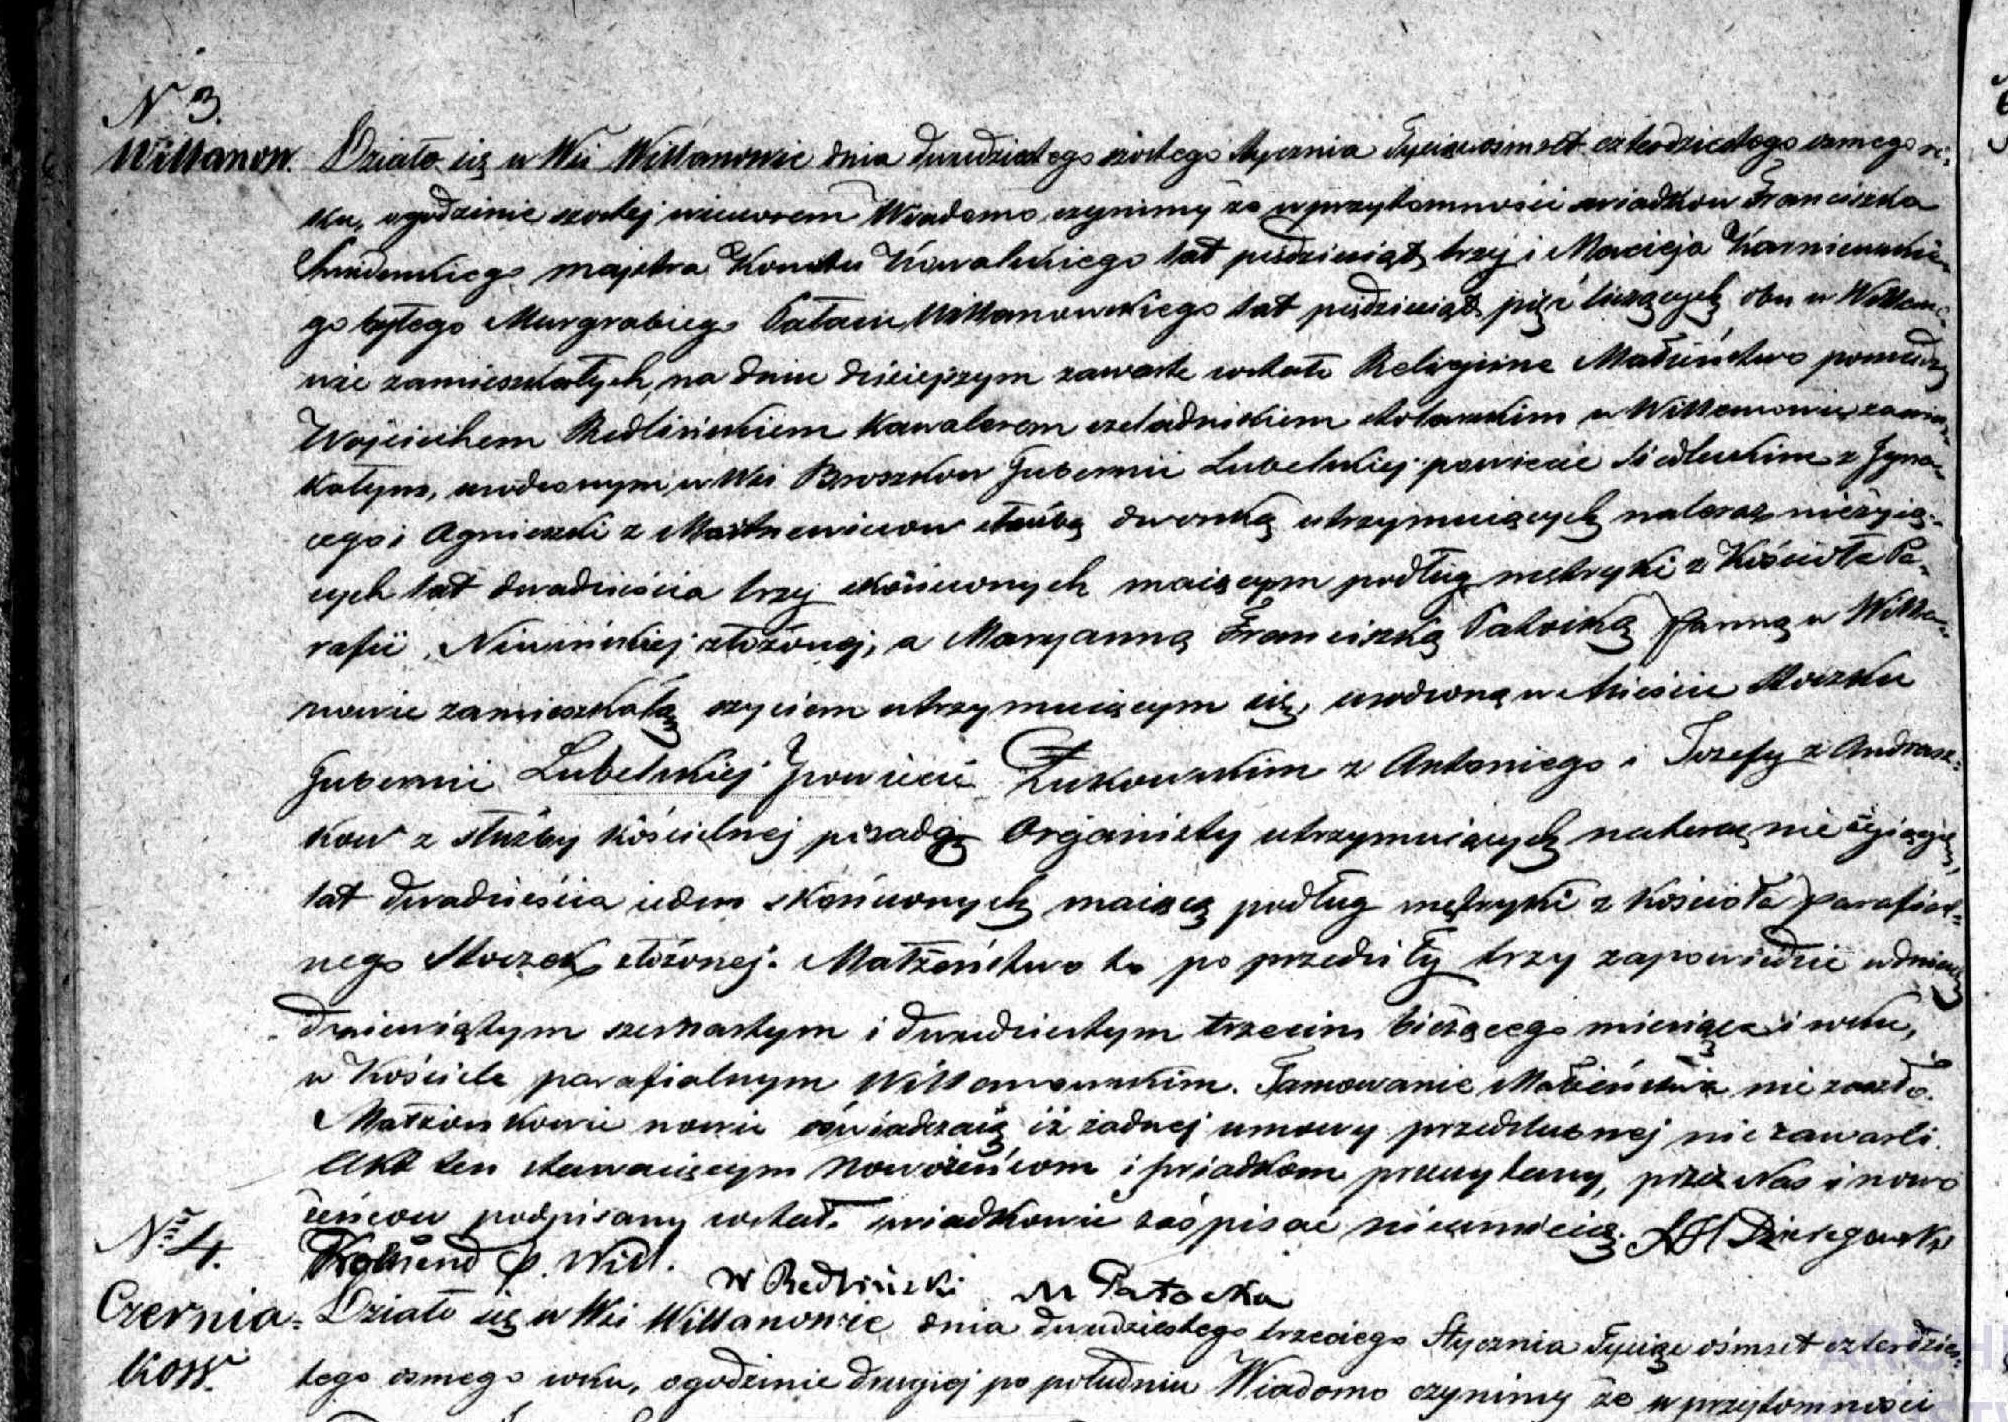 N 3.
Willanow. Działo się w Wsi Willanowie dnia dwudziestego szóstego Stycznia Tysiąc osmset czterdziestego osmego ro-
ku, o godzinie szóstej wieczorem Wiadomo czynimy że w przytomności świadków Franciszka
majstra Kowalskiego lat pięćdziesiąt trzy i Macieja Karniewskie-
go byłego Murgrabiego Pałacu Willanowskiego lat pięćdziesiąt pięć liczących obu w Willano-
wie zamieszkałych, na dniu dzisiejszym zawarte zostało Religijne Małżeństwo pomiędzy
Wojciechem Redlińskiem Kawalerem czeladnikiem stolarskim w Willanowie zamiesz-
kałym, urodzonym w Wsi Broszkow Gubernii Lubelskiej powiecie Siedleckim z Igna-
cego i Agnieszki z służbą dworską utrzymuiących na teraz nieżyią-
cych lat dwadzieścia trzy skończonych maiącym podług metryki z Kościoła Pa-
rafii Niwińskiej złożonej, a Maryanną Franciszką Patocką Panną w Willa-
nowie zamieszkałą szyciem utrzymuiącym się, urodzoną w Mieście Stoczku
Gubernii Lubelskiej Powiecie Łukowskim z Antoniego i Jozefy z Andrasz-
kow z służby kościelnej posadę Organisty utrzymuiących na teraz nie żyiących,
lat dwadzieścia ieden skończonych maiącą podług metryki z Kościoła parafial-
nego Stoczek złożonej. Małżeństwo to poprzedziły trzy zapowiedzie w dniach
dziewiątym szesnastym i dwudziestym trzecim bieżącego miesiąca i roku,
w Kościele parafialnym Willanowskim. Tamowanie Małżeństwa nie zaszło.
Małżonkowie nowi oświadczaią iż żadnej umowy przedślubnej nie zawarli.
Akt ten stawaiącym Nowożeńcom i świadkom przeczytany, przez Nas i nowo
żeńcow podpisany został. świadkowie zaś pisać nie umieią. Dzieregowski
Komend P. Will.
W Redliński M Patocka
N° 4.
Czernia- Działo się w Wsi Willanowie dnia dwudziestego trzeciego Stycznia Tysiąc ośmset czterdzies-
kow. tego osmego roku, o godzinie drugiej po południu Wiadomo czynimy że w przytomności